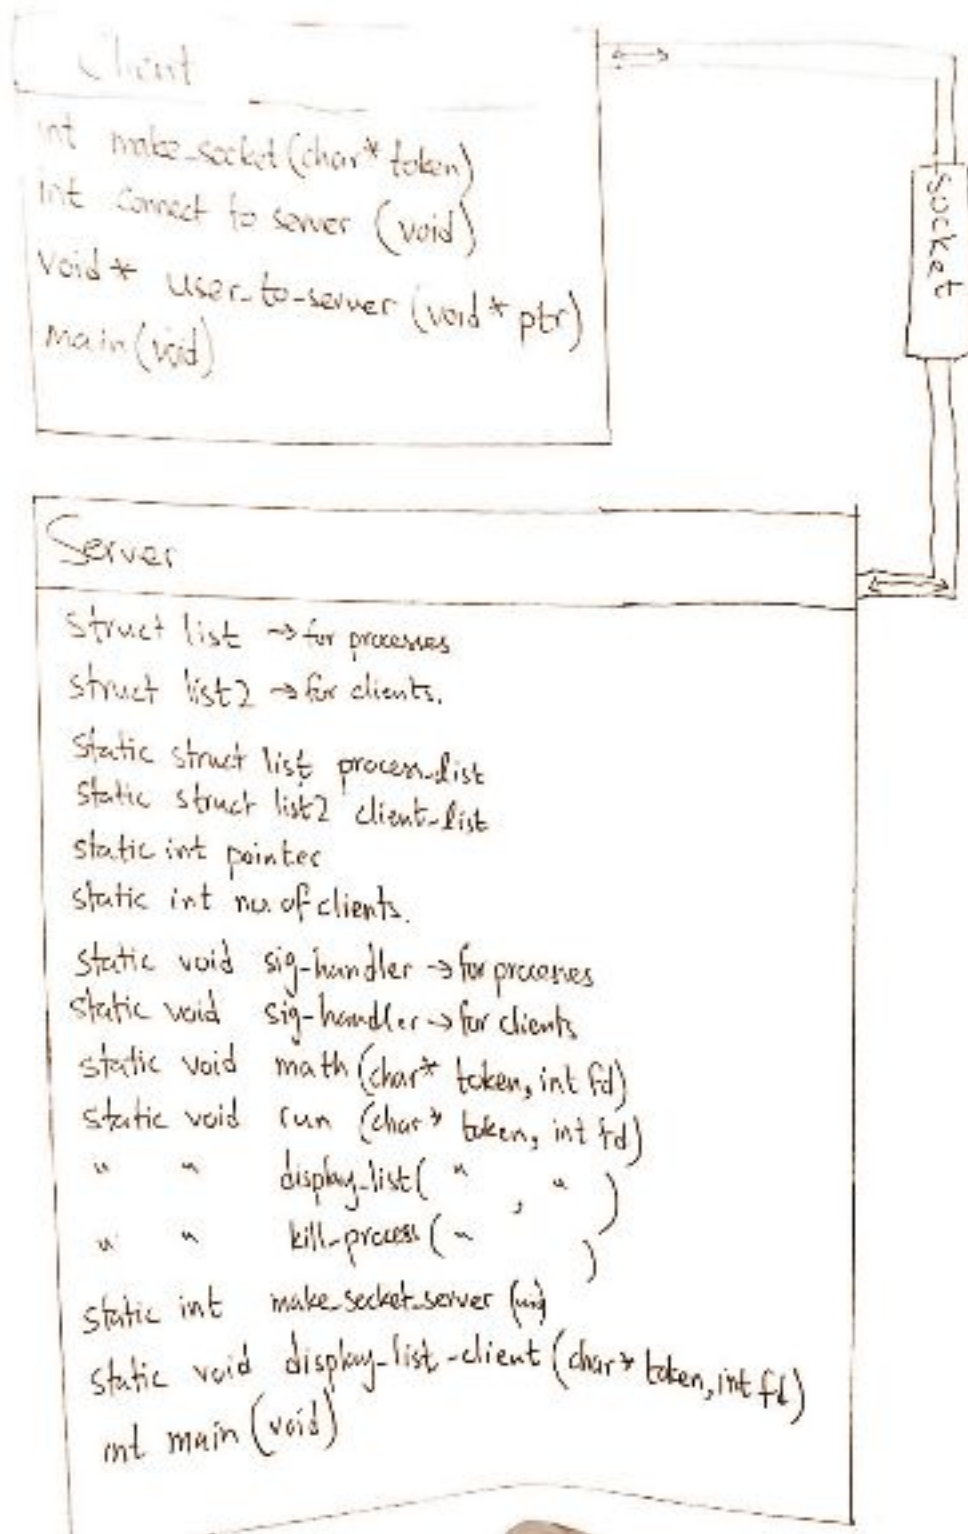 Client
int make_socket(char* token)
int connect to server (void)
void* user_to_server (void* ptr)
main(void)
socket
Server
struct list → for processes
struct list2 → for clients.
static struct list process_list
static struct list2 client_list
static int pointer
static int no. of clients.
static void sig-handler → for processes
static void sig-handler → for clients
static void math(char* token, int fd)
static void run (char* token, int fd)
" " display_list( " , " )
" " kill_process( " )
static int make_socket_server
static void display_list-client (char* token, int fd)
int main (void)